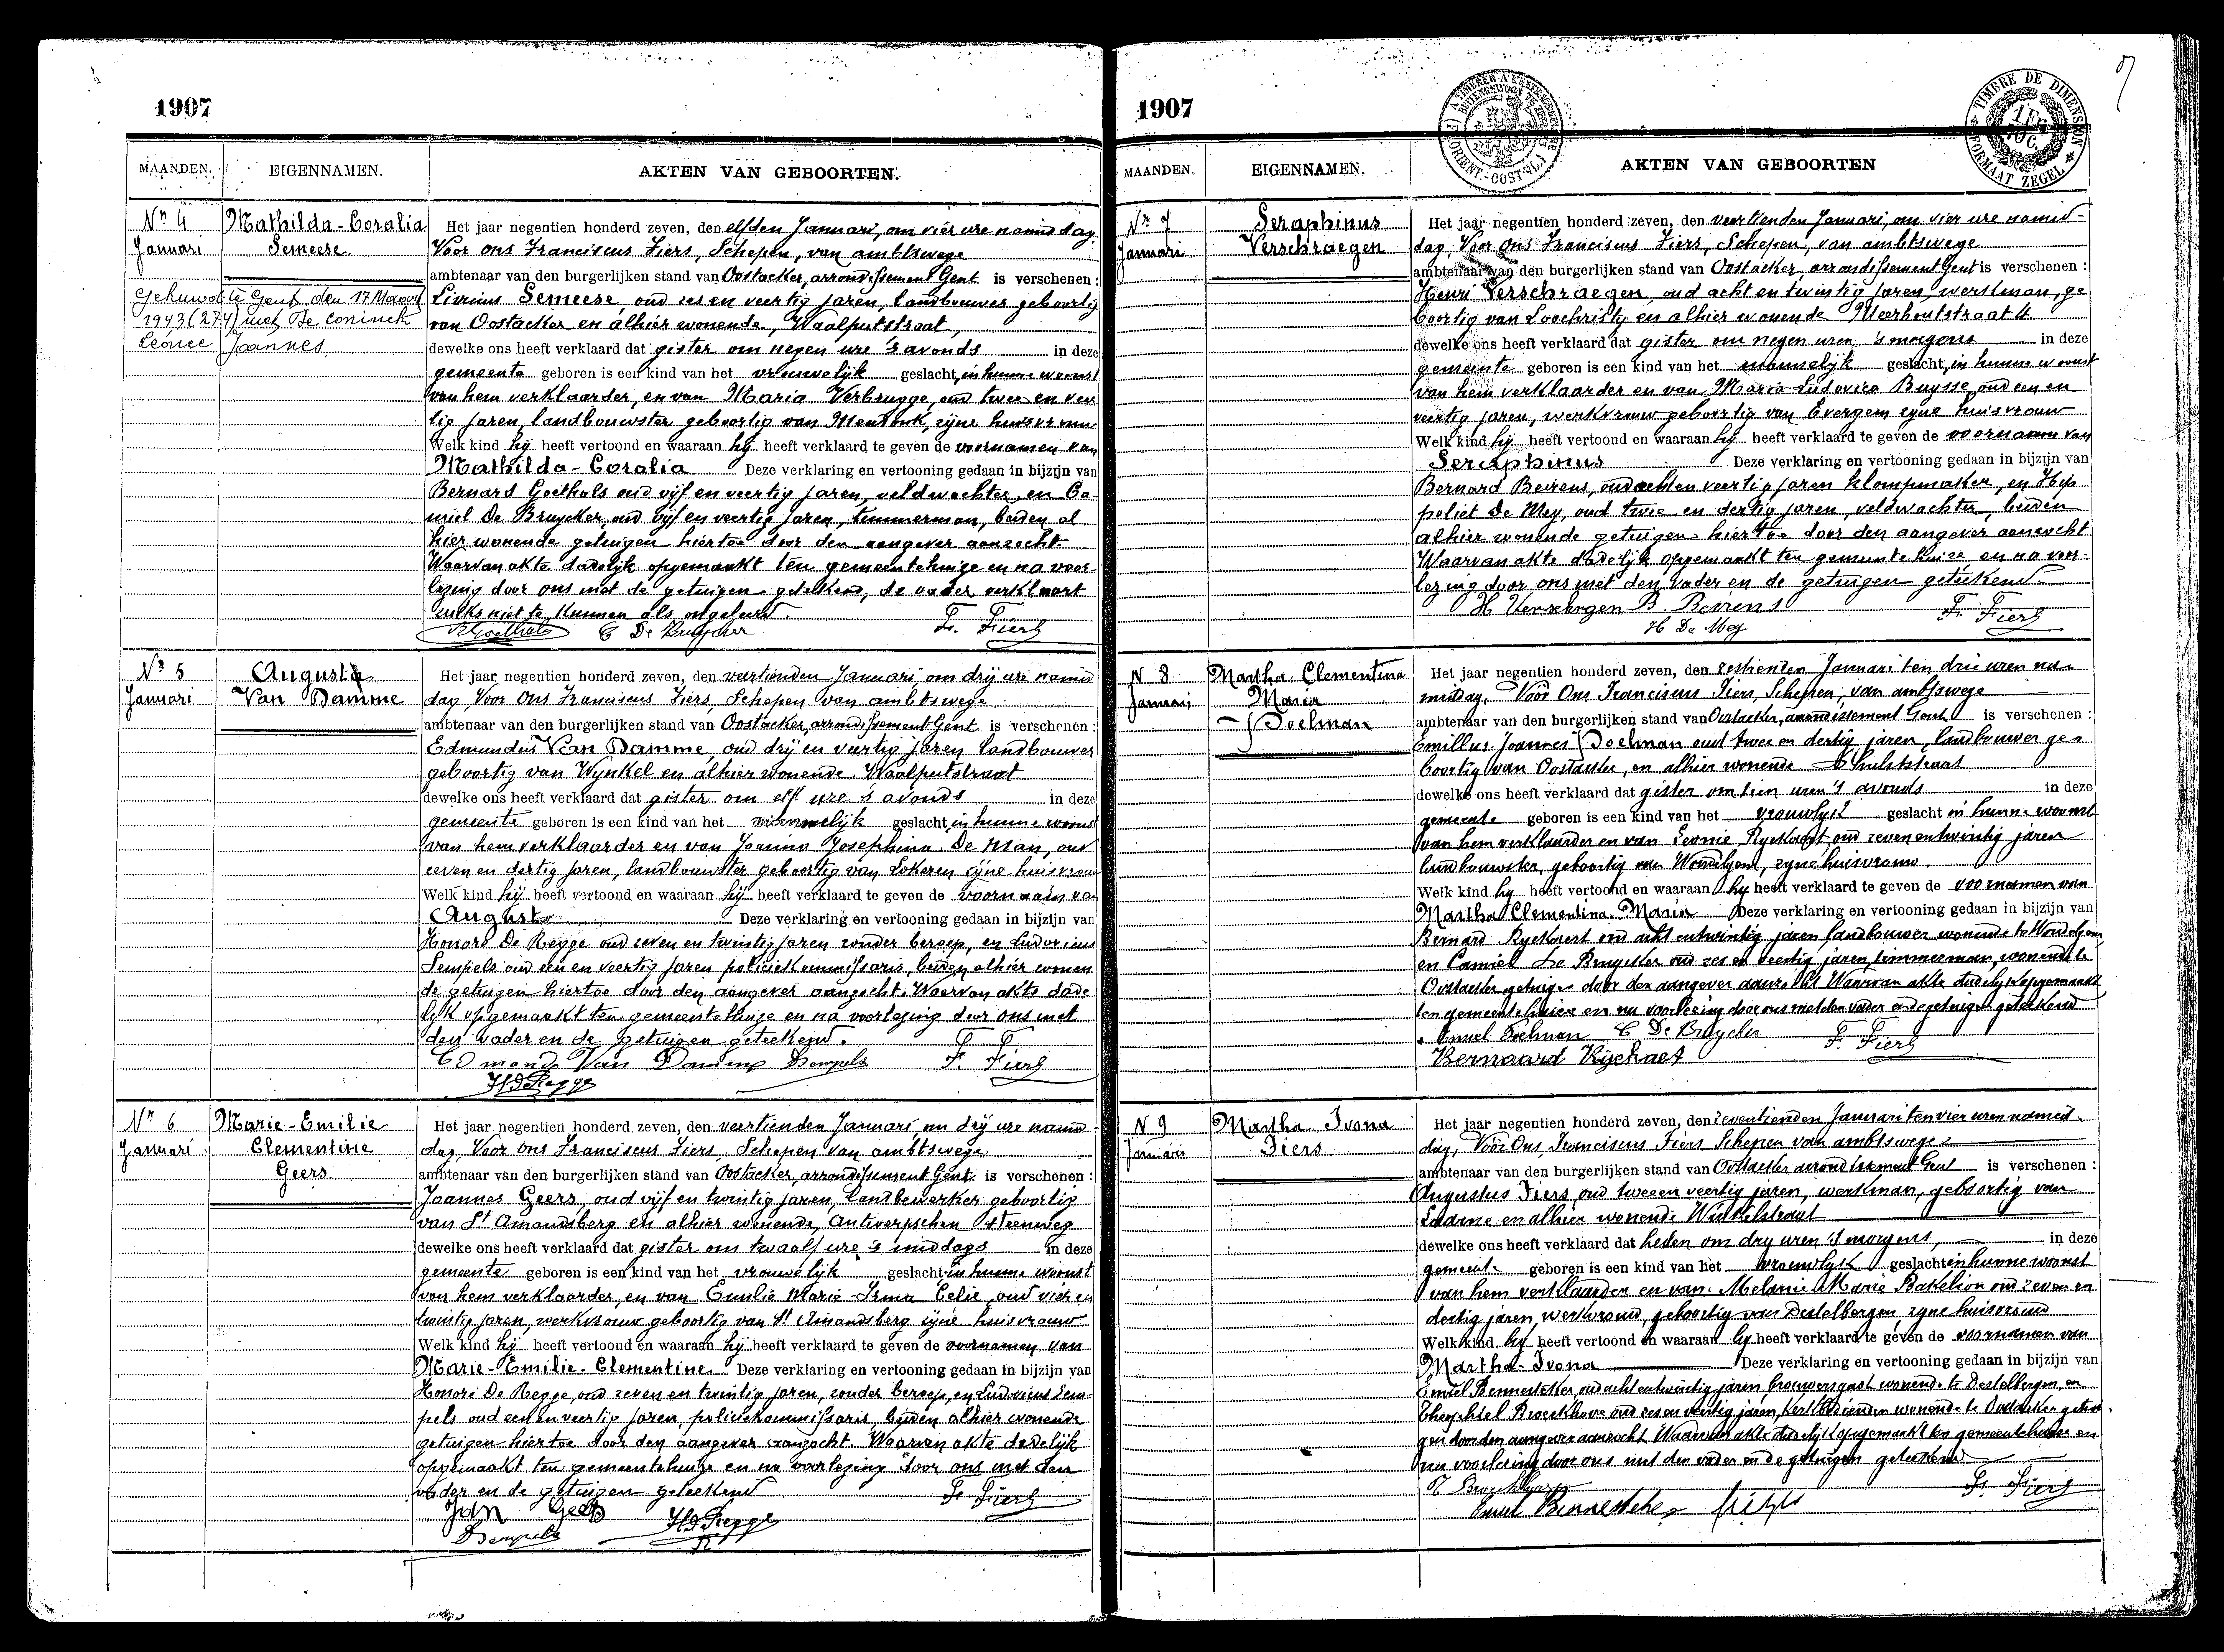 1907
MAANDEN. EIGENNAMEN. AKTEN VAN GEBOORTEN.
Nr 4 Mathilda-Coralia
Januari Semeese.
Gehuwd te Gent, den 17 Maart
1943 (274) met De Coninck
Leonce Joannes
Het jaar negentien honderd zeven, den elfden Januari, om vier ure namiddag
Voor ons Franciscus Fiers, Schepen, van ambtswege
ambtenaar van den burgerlijken stand van Oostacker, arrondissement Gent is verschenen :
Livinus Semeese, oud zes en veertig jaren, landbouwer geboortig
van Oostacker en alhier wonende, Waalputstraat,
dewelke ons heeft verklaard dat gister om negen ure 's avonds in deze
gemeente geboren is een kind van het vrouwelijk geslacht, in hunne woonst
van hem verklaarder, en van Maria Verbrugge, oud twee en veer
tig jaren, landbouwster geboortig van Mendonk, zijne huisvrouw
Welk kind hij heeft vertoond en waaraan hij heeft verklaard te geven de voornamen van
Mathilda-Coralia Deze verklaring en vertooning gedaan in bijzijn van
Bernard Goethals oud vijf en veertig jaren, veldwachter, en Ca-
miel De Bruycker, oud vijf en veertig jaren, timmerman, beiden al
hier wonende getuigen hiertoe door den aangever aanzocht.
Waarvan akte dadelijk opgemaakt ten gemeentehuize en na voor-
lezing door ons met de getuigen geteekend, de vader verklaart
zulks niet te kunnen als ongeleerd.
B Goethals C De Bruycker F. Fiers
Nr 5 Auguste
Januari Van Damme
Het jaar negentien honderd zeven, den veertienden Januari, om drij ure namid
dag, Voor Ons Franciscus Fiers, Schepen van ambtswege
ambtenaar van den burgerlijken stand van Oostacker, arrondissement Gent is verschenen :
Edmundus Van Damme, oud drij en veertig jaren landbouwer
geboortig van Wynkel en alhier wonende Waalputstraat
dewelke ons heeft verklaard dat gister om elf ure 's avonds in deze
gemeente geboren is een kind van het mannelijk geslacht, in hunne woonst
van hem verklaarder en van Joanna Josephina De Man, oud
zeven en dertig jaren, landbouwster geboortig van Lokeren zijne huisvrouw
Welk kind hij heeft vertoond en waaraan hij heeft verklaard te geven de voornaam van
August Deze verklaring en vertooning gedaan in bijzijn van
Honoré De Regge oud zeven en twintig jaren zonder beroep, en Ludovicus
Sempels oud een en veertig jaren policiekommissaris, beiden alhier wonen
de getuigen hiertoe door den aangever aangezocht. Waarvan akte dade
lijk opgemaakt ten gemeentehuize en na voorlezing door ons met
den vader en de getuigen geteekend.
Edmond Van Damme Sempels F. Fiers
H De Regge
Nr 6 Marie-Emilie
Januari Clementine
Geers.
Het jaar negentien honderd zeven, den veertienden Januari, om drij ure namid
dag, Voor ons Franciscus Fiers, Schepen van ambtswege
ambtenaar van den burgerlijken stand van Oostacker, arrondissement Gent is verschenen :
Joannes Geers, oud vijf en twintig jaren, landbewerker geboortig
van St Amandsberg en alhier wonende, Antwerpschen steenweg
dewelke ons heeft verklaard dat gister om twaalf ure 's middags in deze
gemeente geboren is een kind van het vrouwelijk geslacht in hunne woonst
van hem verklaarder, en van Emilie Marie-Irma Celie, oud vier en
twintig jaren, werkvrouw geboortig van St Amandsberg zijne huisvrouw
Welk kind hij heeft vertoond en waaraan hij heeft verklaard te geven de voornamen van
Marie-Emilie-Clementine Deze verklaring en vertooning gedaan in bijzijn van
Honoré De Regge, oud zeven en twintig jaren, zonder beroep, en Ludovicus Sem-
pels oud een en veertig jaren, policiekommissaris, beiden alhier wonende
getuigen hiertoe door den aangever aanzocht. Waarvan akte dadelijk
opgemaakt ten gemeentehuize en na voorlezing door ons met den
vader en de getuigen geteekend
Jan Geers F. Fiers
Sempels H De Regge
1907
MAANDEN. EIGENNAMEN. AKTEN VAN GEBOORTEN
TIMBRE DE DIMENSION
FORMAAT ZEGEL
Nr 7 Seraphinus
Januari Verschraegen
Het jaar negentien honderd zeven, den veertienden Januari, om vier ure namid-
dag, Voor Ons Franciscus Fiers, Schepen, van ambtswege
ambtenaar van den burgerlijken stand van Oostacker, arrondissement Gent is verschenen :
Henri Verschraegen, oud acht en twintig jaren, werkman, ge
boortig van Loochristy en alhier wonende Meerhoutstraat
dewelke ons heeft verklaard dat gister om negen uren 's morgens in deze
gemeente geboren is een kind van het mannelijk geslacht, in hunne woonst
van hem verklaarder en van Maria Ludovica Buysse, oud een en
veertig jaren, werkvrouw geboortig van Evergem zijne huisvrouw
Welk kind hij heeft vertoond en waaraan hij heeft verklaard te geven de voornaam van
Seraphinus Deze verklaring en vertooning gedaan in bijzijn van
Bernard Beirens, oud acht en veertig jaren klompmaker, en Hip
poliet De Mey, oud twee en dertig jaren, veldwachter, beiden
alhier wonende getuigen hiertoe door den aangever aanzocht
Waarvan akte dadelijk opgemaakt ten gemeentehuize en na voor-
lezing door ons met den vader en de getuigen geteekend
H Verschrgen B Beirens F. Fiers
H De Mey
N 8 Martha Clementina
Januari Maria
Poelman
Het jaar negentien honderd zeven, den zestienden Januari ten drie uren na-
middag, Vóór Ons Franciscus Fiers, Schepen, van ambtswege
ambtenaar van den burgerlijken stand van Oostacker, arrondissement Gent is verschenen :
Emillus Joannes Poelman oud twee en dertig jaren, landbouwer ge-
boortig van Oostacker, en alhier wonende
dewelke ons heeft verklaard dat gister om tien uren 's avonds in deze
gemeente geboren is een kind van het vrouwlyk geslacht in hunne woonst
van hem verklaarder en van Leonie Ryckaert oud zeven en twintig jaren
landbouwster, geboortig van Wondelgem, zyne huisvrouw.
Welk kind hy heeft vertoond en waaraan hy heeft verklaard te geven de voornamen van
Martha Clementina Maria Deze verklaring en vertooning gedaan in bijzijn van
Bernard Ryckaert oud acht en twintig jaren landbouwer wonende te Wondelgem
en Camiel De Bruycker oud zes en veertig jaren, timmerman, wonende te
Oostacker getuigen door den aangever aanzocht Waarvan akte dadelyk opgemaakt
ten gemeentehuize en na voorlezing door ons met den vader en de getuigen geteekend
Emiel Poelman C De Bruycker F. Fiers
Bernaard Rijckaet
N 9 Martha Ivona
Januari Fiers.
Het jaar negentien honderd zeven, den zeventienden Januari ten vier uren namid-
dag, Vóór Ons Franciscus Fiers Schepen van ambtswege
ambtenaar van den burgerlijken stand van Oostacker arrondissement Gent is verschenen :
Augustus Fiers, oud twee en veertig jaren, werkman, geboortig van
Laarne en alhier wonende Winkelstraat
dewelke ons heeft verklaard dat heden om dry uren 's morgens, in deze
gemeente geboren is een kind van het vrouwlyk geslacht in hunne woonst
van hem verklaarder en van Melanie Marie Batselion oud zeven en
dertig jaren, werkvrouw, geboortig van Destelbergen, zyne huisvrouw
Welk kind hy heeft vertoond en waaraan hy heeft verklaard te geven de voornamen van
Martha-Ivona Deze verklaring en vertooning gedaan in bijzijn van
Emiel oud acht en twintig jaren brouwersgast wonende te Destelbergen, en
Theophiel Broeckhove oud zes en veertig jaren, wonende te Oostacker getui-
gen door den aangever aanzocht Waarvan akte dadelyk opgemaakt ten gemeentehuize en
na voorlezing door ons met den vader en de getuigen geteekend
F. Fiers
Emiel